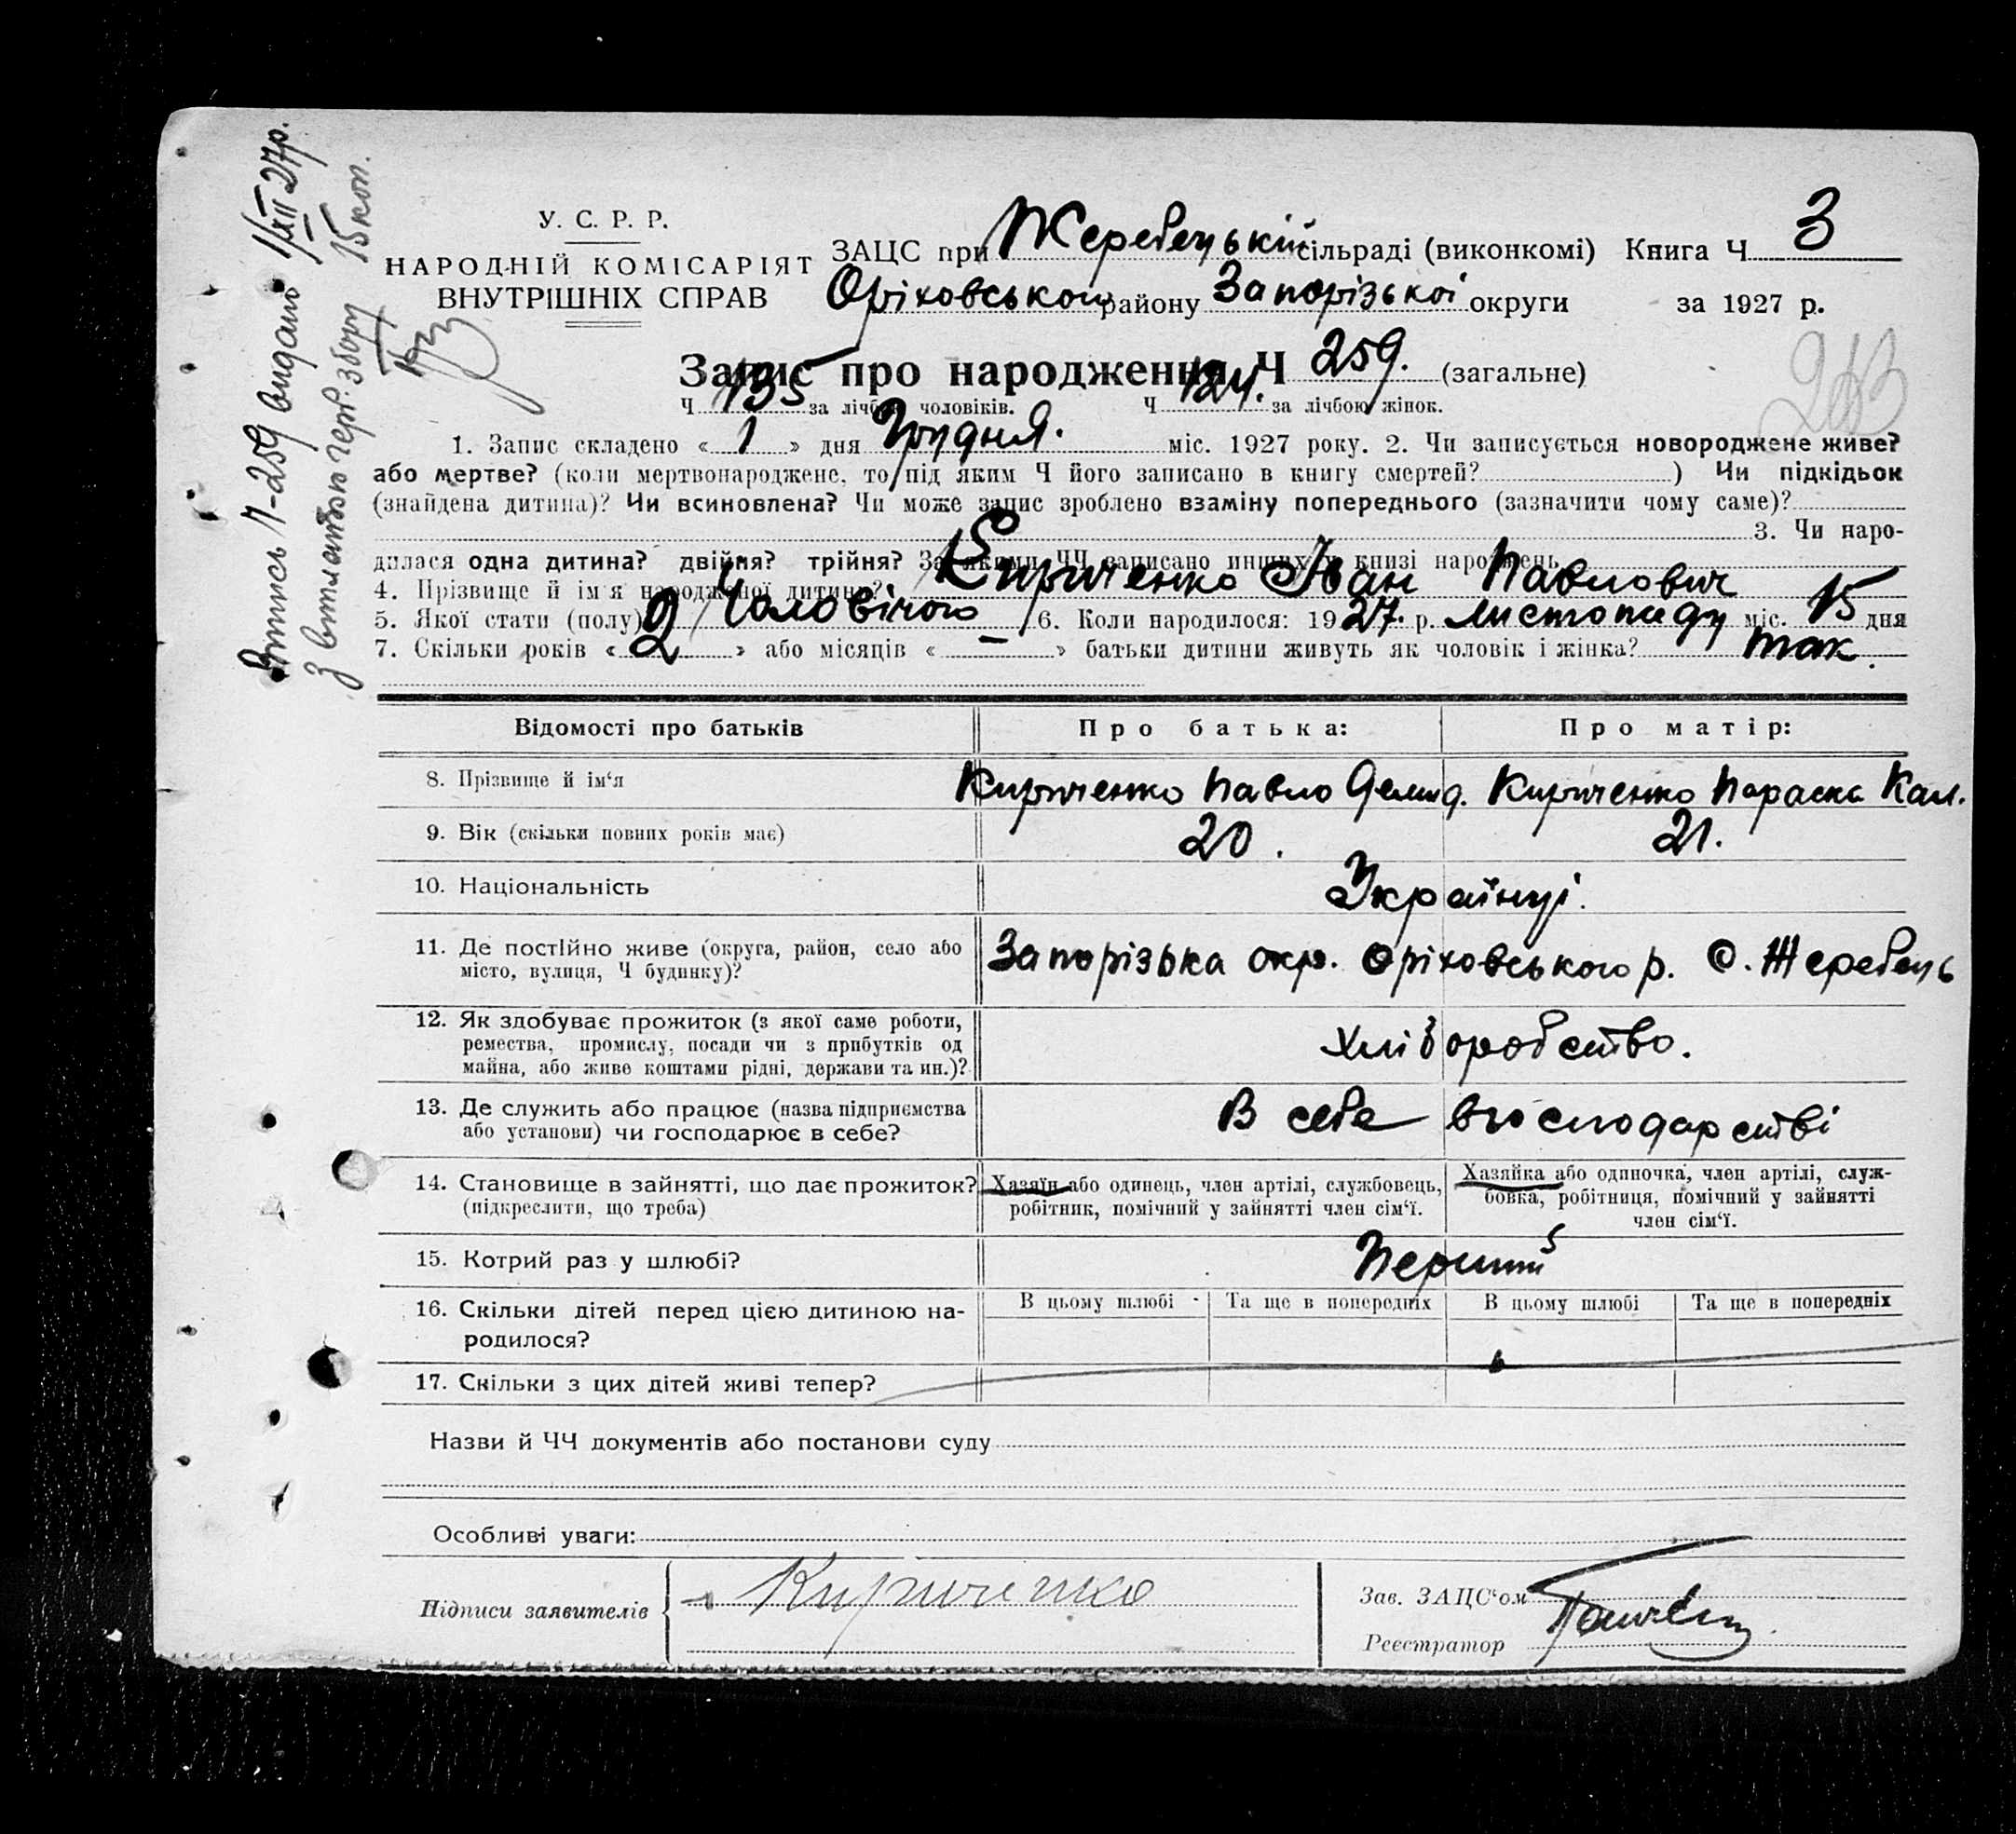 Випись Ч-259 видано 1/XII 27р.
З вплатою герб. збору 15 коп.
У. С. Р. Р.
НАРОДНІЙ КОМІСАРІЯТ
ВНУТРІШНІХ СПРАВ
ЗАЦС при Жеребецькій сільраді (виконкомі) Книга Ч 3
Оріховського району Запорізької округи за 1927 р.
Запис про народження Ч 259. (загальне)
Ч 135 за лічбою чоловіків. Ч 124. за лічбою жінок.
1. Запис складено « 1 » дня Грудня. міс. 1927 року. 2. Чи записується новороджене живе?
або мертве? (коли мертвонароджене, то під яким Ч його записано в книгу смертей? ) Чи підкідьок
(знайдена дитина)? Чи всиновлена? Чи може запис зроблено взаміну попереднього (зазначити чому саме)?
3. Чи наро-
дилася одна дитина? двійня? трійня? За якими ЧЧ записано инших в книзі народжень
4. Прізвище й ім'я народженої дитини? Кириченко Іван Павлович
5. Якої стати (полу) Чоловічого 6. Коли народилося: 1927. р. листопаду міс. 15 дня
7. Скільки років « 2 » або місяців « – » батьки дитини живуть як чоловік і жінка? так.
Відомості про батьків Про батька: Про матір:
8. Прізвище й ім'я Кириченко Павло Демид. Кириченко Параска Кал.
9. Вік (скільки повних років має) 20. 21.
10. Національність Українці.
11. Де постійно живе (округа, район, село або Запорізька окр. Оріховського р. с. Жеребець
місто, вулиця, Ч будинку)?
12. Як здобуває прожиток (з якої саме роботи,
ремества, промислу, посади чи з прибутків од хліборобство.
майна, або живе коштами рідні, держави та ин.)?
13. Де служить або працює (назва підприємства В себе в господарстві
або установи) чи господарює в себе?
14. Становище в зайнятті, що дає прожиток? Хазяїн або одинець, член артілі, службовець, Хазяйка або одиночка, член артілі, служ-
(підкреслити, що треба) робітник, помічний у зайнятті член сім'ї. бовка, робітниця, помічний у зайнятті
член сім'ї.
15. Котрий раз у шлюбі? Перший
16. Скільки дітей перед цією дитиною на- В цьому шлюбі Та ще в попередніх В цьому шлюбі Та ще в попередніх
родилося?
17. Скільки з цих дітей живі тепер?
Назви й ЧЧ документів або постанови суду
Особливі уваги:
Підписи заявителів Кириченко
Зав. ЗАЦС'ом
Реєстратор